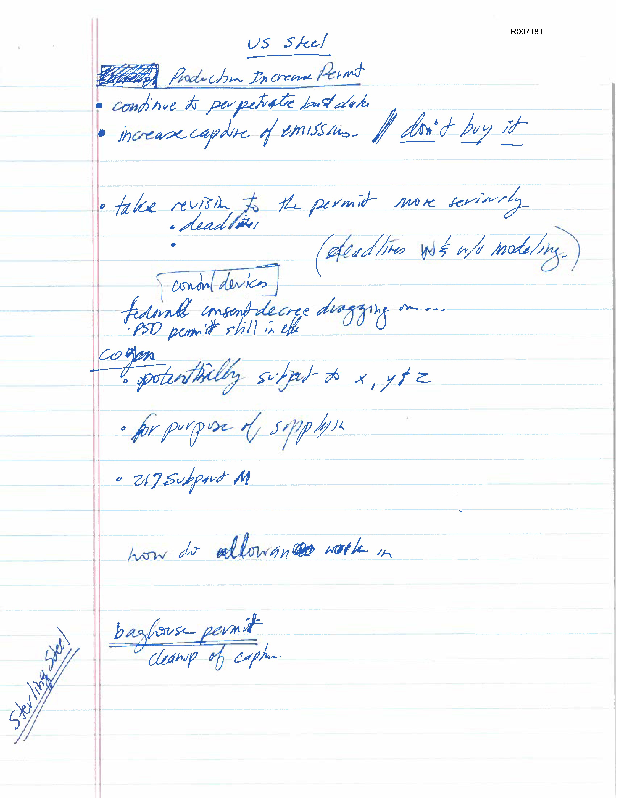 R007181
US Steel
Production Increase Permit
• continue to perpetuate bad data
• increase capture of emissions. // don't buy it
• take revision to the permit more seriously
• deadlines
•
(deadlines w/o modeling.)
control devices
federal consent decree dragging on...
• PSD permit still in effe
cogen
• potentially subject to x, y & z
• for purpose of supplyin
• 217 Subpart M
how do allowan work in
baghouse permit
cleanup of captu
Sterling Steel